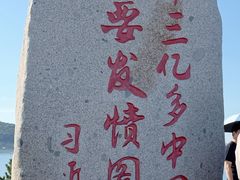 三亿多中
要发愤图
习